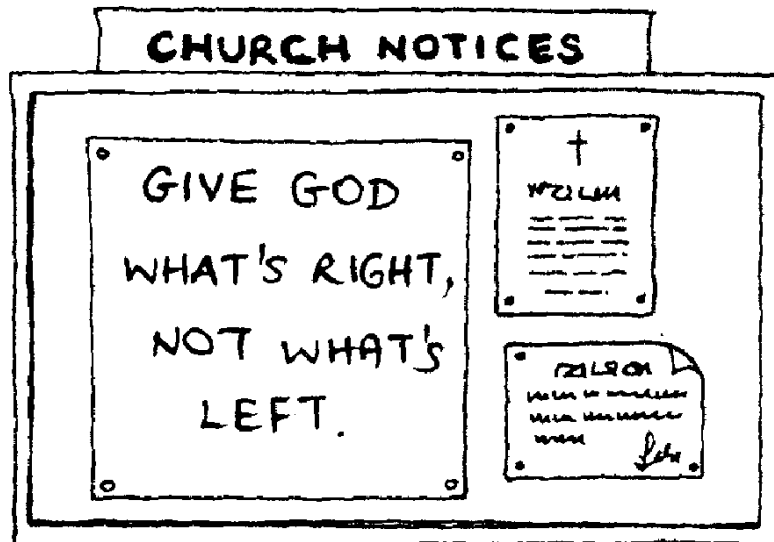 CHURCH NOTICES
GIVE GOD
WHAT'S RIGHT,
NOT WHAT'S
LEFT.